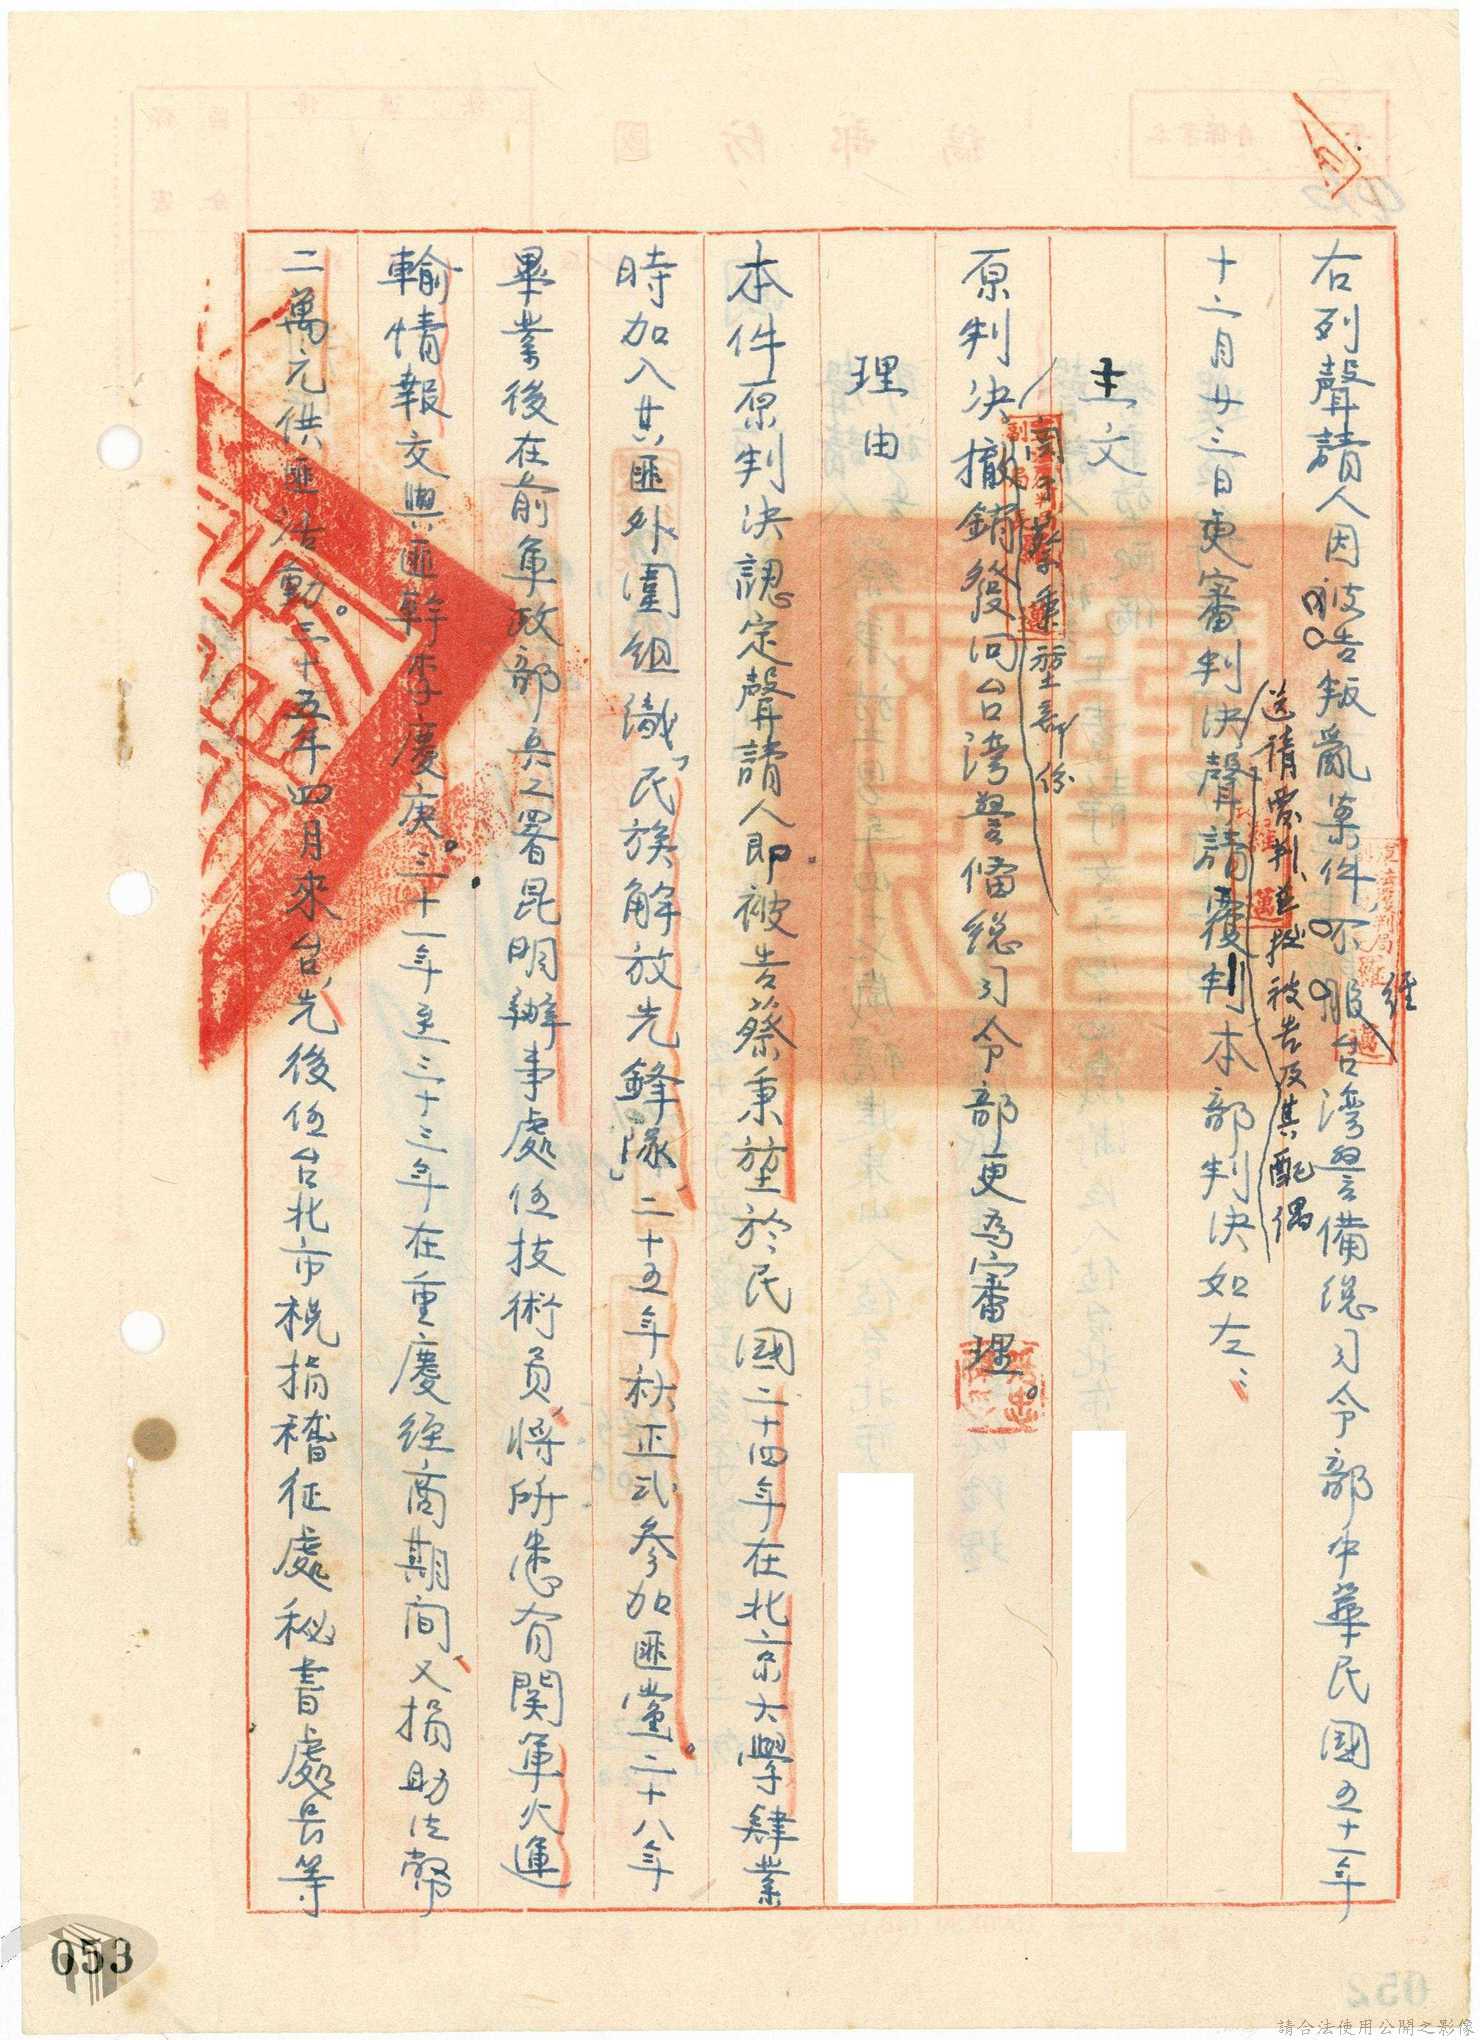 右列聲請人因被告叛亂案件不服台湾警備総司令部中華民國五十一年
經
十二月廿三日更審判決聲請覆判本部判決如左：
送請覆判並据被告及其配偶
主文
關于蔡秉堃部份
原判決撤銷發回台湾警俻総司令部更為審理。
理由
本件原判決認定聲請人即被告蔡秉堃於民國二十四年在北京大學肄業
時加入共匪外圍組織「民族解放先鋒隊」二十五年秋正式參加匪黨。二十八年
畢業後在前軍政部兵工署昆明辦事處任技術員，將所悉有関軍火運
輸情報交與匪幹李慶庚。三十一年至三十三年在重慶經商期间，又捐助法幣
二萬元供匪活動。三十五年四月來台，先後任台北市稅捐稽征處秘書處長等
053
請合法使用公開之影像